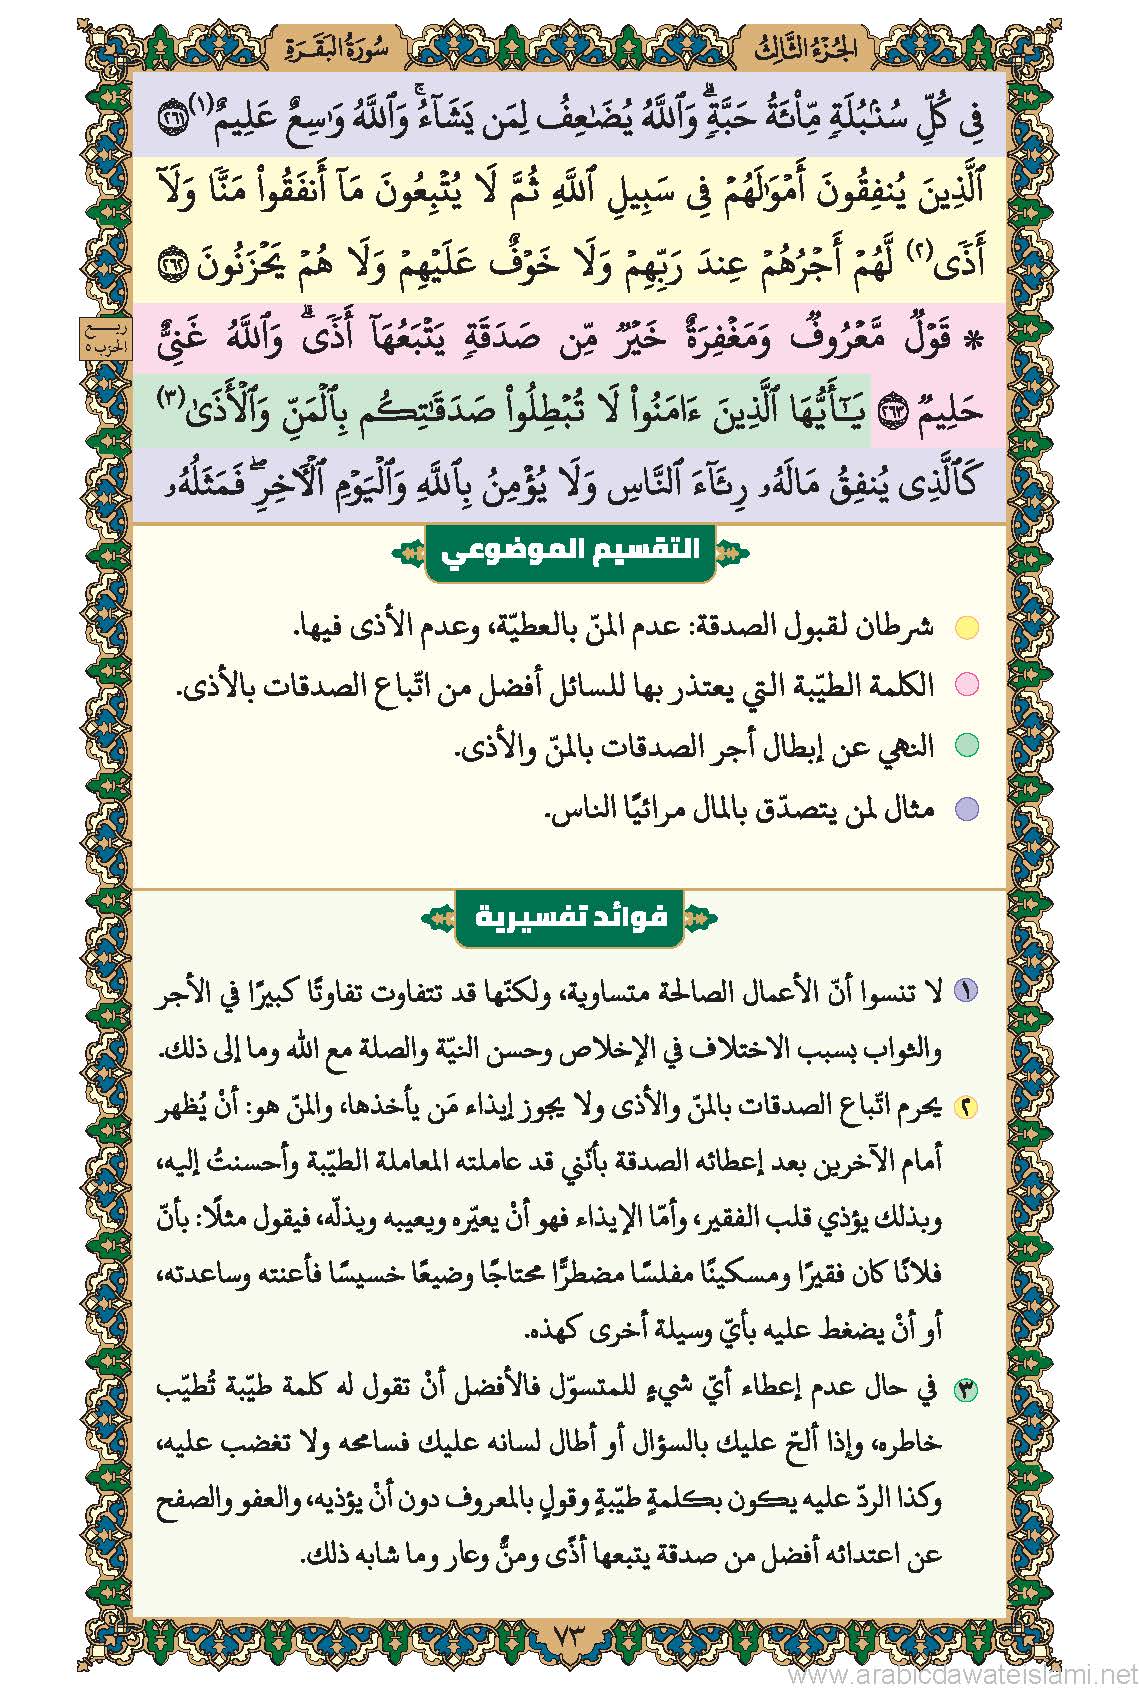 الجُزْءُ الثَّالِثُ
سُورَةُ البَقَرَةِ
فِى كُلِّ سُنۢبُلَةٖ مِّاْئَةُ حَبَّةٖۗ وَٱللَّهُ يُضَٰعِفُ لِمَن يَشَآءُۚ وَٱللَّهُ وَٰسِعٌ عَلِيمٌ(١) ٢٦١
ٱلَّذِينَ يُنفِقُونَ أَمْوَٰلَهُمْ فِى سَبِيلِ ٱللَّهِ ثُمَّ لَا يُتْبِعُونَ مَآ أَنفَقُواْ مَنًّا وَلَآ
أَذًى(٢) لَّهُمْ أَجْرُهُمْ عِندَ رَبِّهِمْ وَلَا خَوْفٌ عَلَيْهِمْ وَلَا هُمْ يَحْزَنُونَ ٢٦٢
* قَوْلٌ مَّعْرُوفٌ وَمَغْفِرَةٌ خَيْرٌ مِّن صَدَقَةٍ يَتْبَعُهَآ أَذًىۗ وَٱللَّهُ غَنِىٌّ
ربع
الحزب ٥
حَلِيمٌ ٢٦٣ يَٰٓأَيُّهَا ٱلَّذِينَ ءَامَنُواْ لَا تُبْطِلُواْ صَدَقَٰتِكُم بِٱلْمَنِّ وَٱلْأَذَىٰ(٣)
كَٱلَّذِى يُنفِقُ مَالَهُۥ رِئَآءَ ٱلنَّاسِ وَلَا يُؤْمِنُ بِٱللَّهِ وَٱلْيَوْمِ ٱلْأٓخِرِۖ فَمَثَلُهُۥ
التقسيم الموضوعي
شرطان لقبول الصدقة: عدم المنّ بالعطيّة، وعدم الأذى فيها.
الكلمة الطيّبة التي يعتذر بها للسائل أفضل من اتّباع الصدقات بالأذى.
النهي عن إبطال أجر الصدقات بالمنّ والأذى.
مثال لمن يتصدّق بالمال مرائيًا الناس.
فوائد تفسيرية
١ لا تنسوا أنّ الأعمال الصالحة متساوية، ولكنّها قد تتفاوت تفاوتًا كبيرًا في الأجر
والثواب بسبب الاختلاف في الإخلاص وحسن النيّة والصلة مع الله وما إلى ذلك.
٢ يحرم اتّباع الصدقات بالمنّ والأذى ولا يجوز إيذاء مَن يأخذها، والمنّ هو: أنْ يُظهر
أمام الآخرين بعد إعطائه الصدقة بأنّني قد عاملته المعاملة الطيّبة وأحسنتُ إليه،
وبذلك يؤذي قلب الفقير، وأمّا الإيذاء فهو أنْ يعيّره ويعيبه ويذلّه، فيقول مثلًا: بأنّ
فلانًا كان فقيرًا ومسكينًا مفلسًا مضطرًّا محتاجًا وضيعًا خسيسًا فأعنته وساعدته،
أو أنْ يضغط عليه بأيّ وسيلة أخرى كهذه.
٣ في حال عدم إعطاء أيّ شيءٍ للمتسوّل فالأفضل أنْ تقول له كلمة طيّبة تُطيّب
خاطره، وإذا ألحّ عليك بالسؤال أو أطال لسانه عليك فسامحه ولا تغضب عليه،
وكذا الردّ عليه يكون بكلمةٍ طيّبةٍ وقولٍ بالمعروف دون أنْ يؤذيه، والعفو والصفح
عن اعتدائه أفضل من صدقة يتبعها أذًى ومنٌّ وعار وما شابه ذلك.
٧٣
www.arabicdawateislami.net